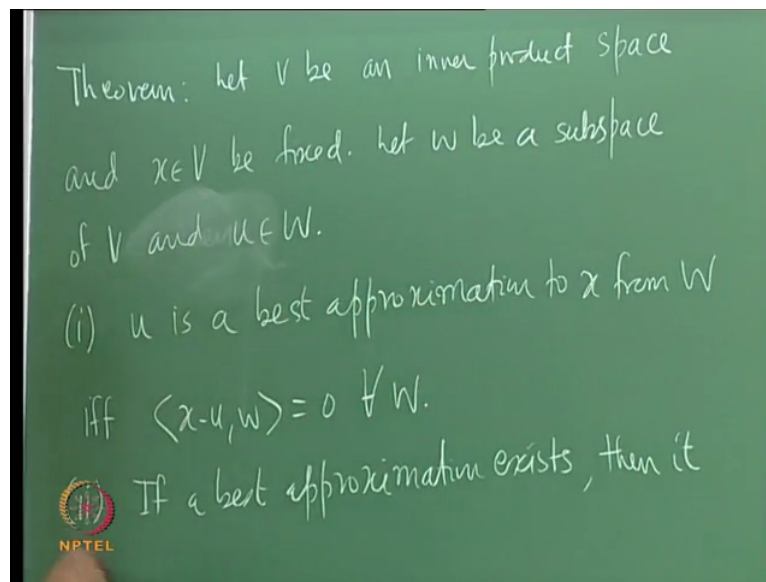 Theorem: Let V be an inner product space
and x∈V be fixed. Let W be a subspace
of V and u∈W.
(i) u is a best approximation to x from W
iff ⟨x-u, w⟩ = 0 ∀ W.
(ii) If a best approximation exists, then it
NPTEL